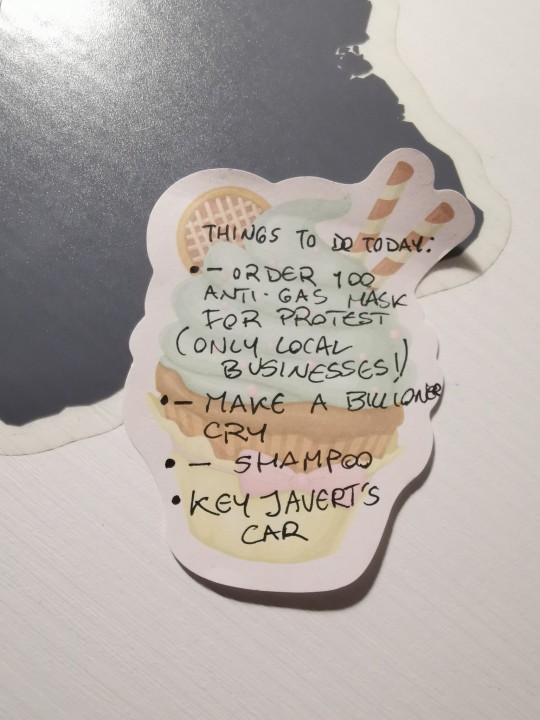 THINGS TO DO TODAY:
• – ORDER 100
ANTI-GAS MASK
FOR PROTEST
(ONLY LOCAL
BUSINESSES!)
• – MAKE A BILLIONER
CRY
• – SHAMPOO
• KEY JAVERT'S
CAR